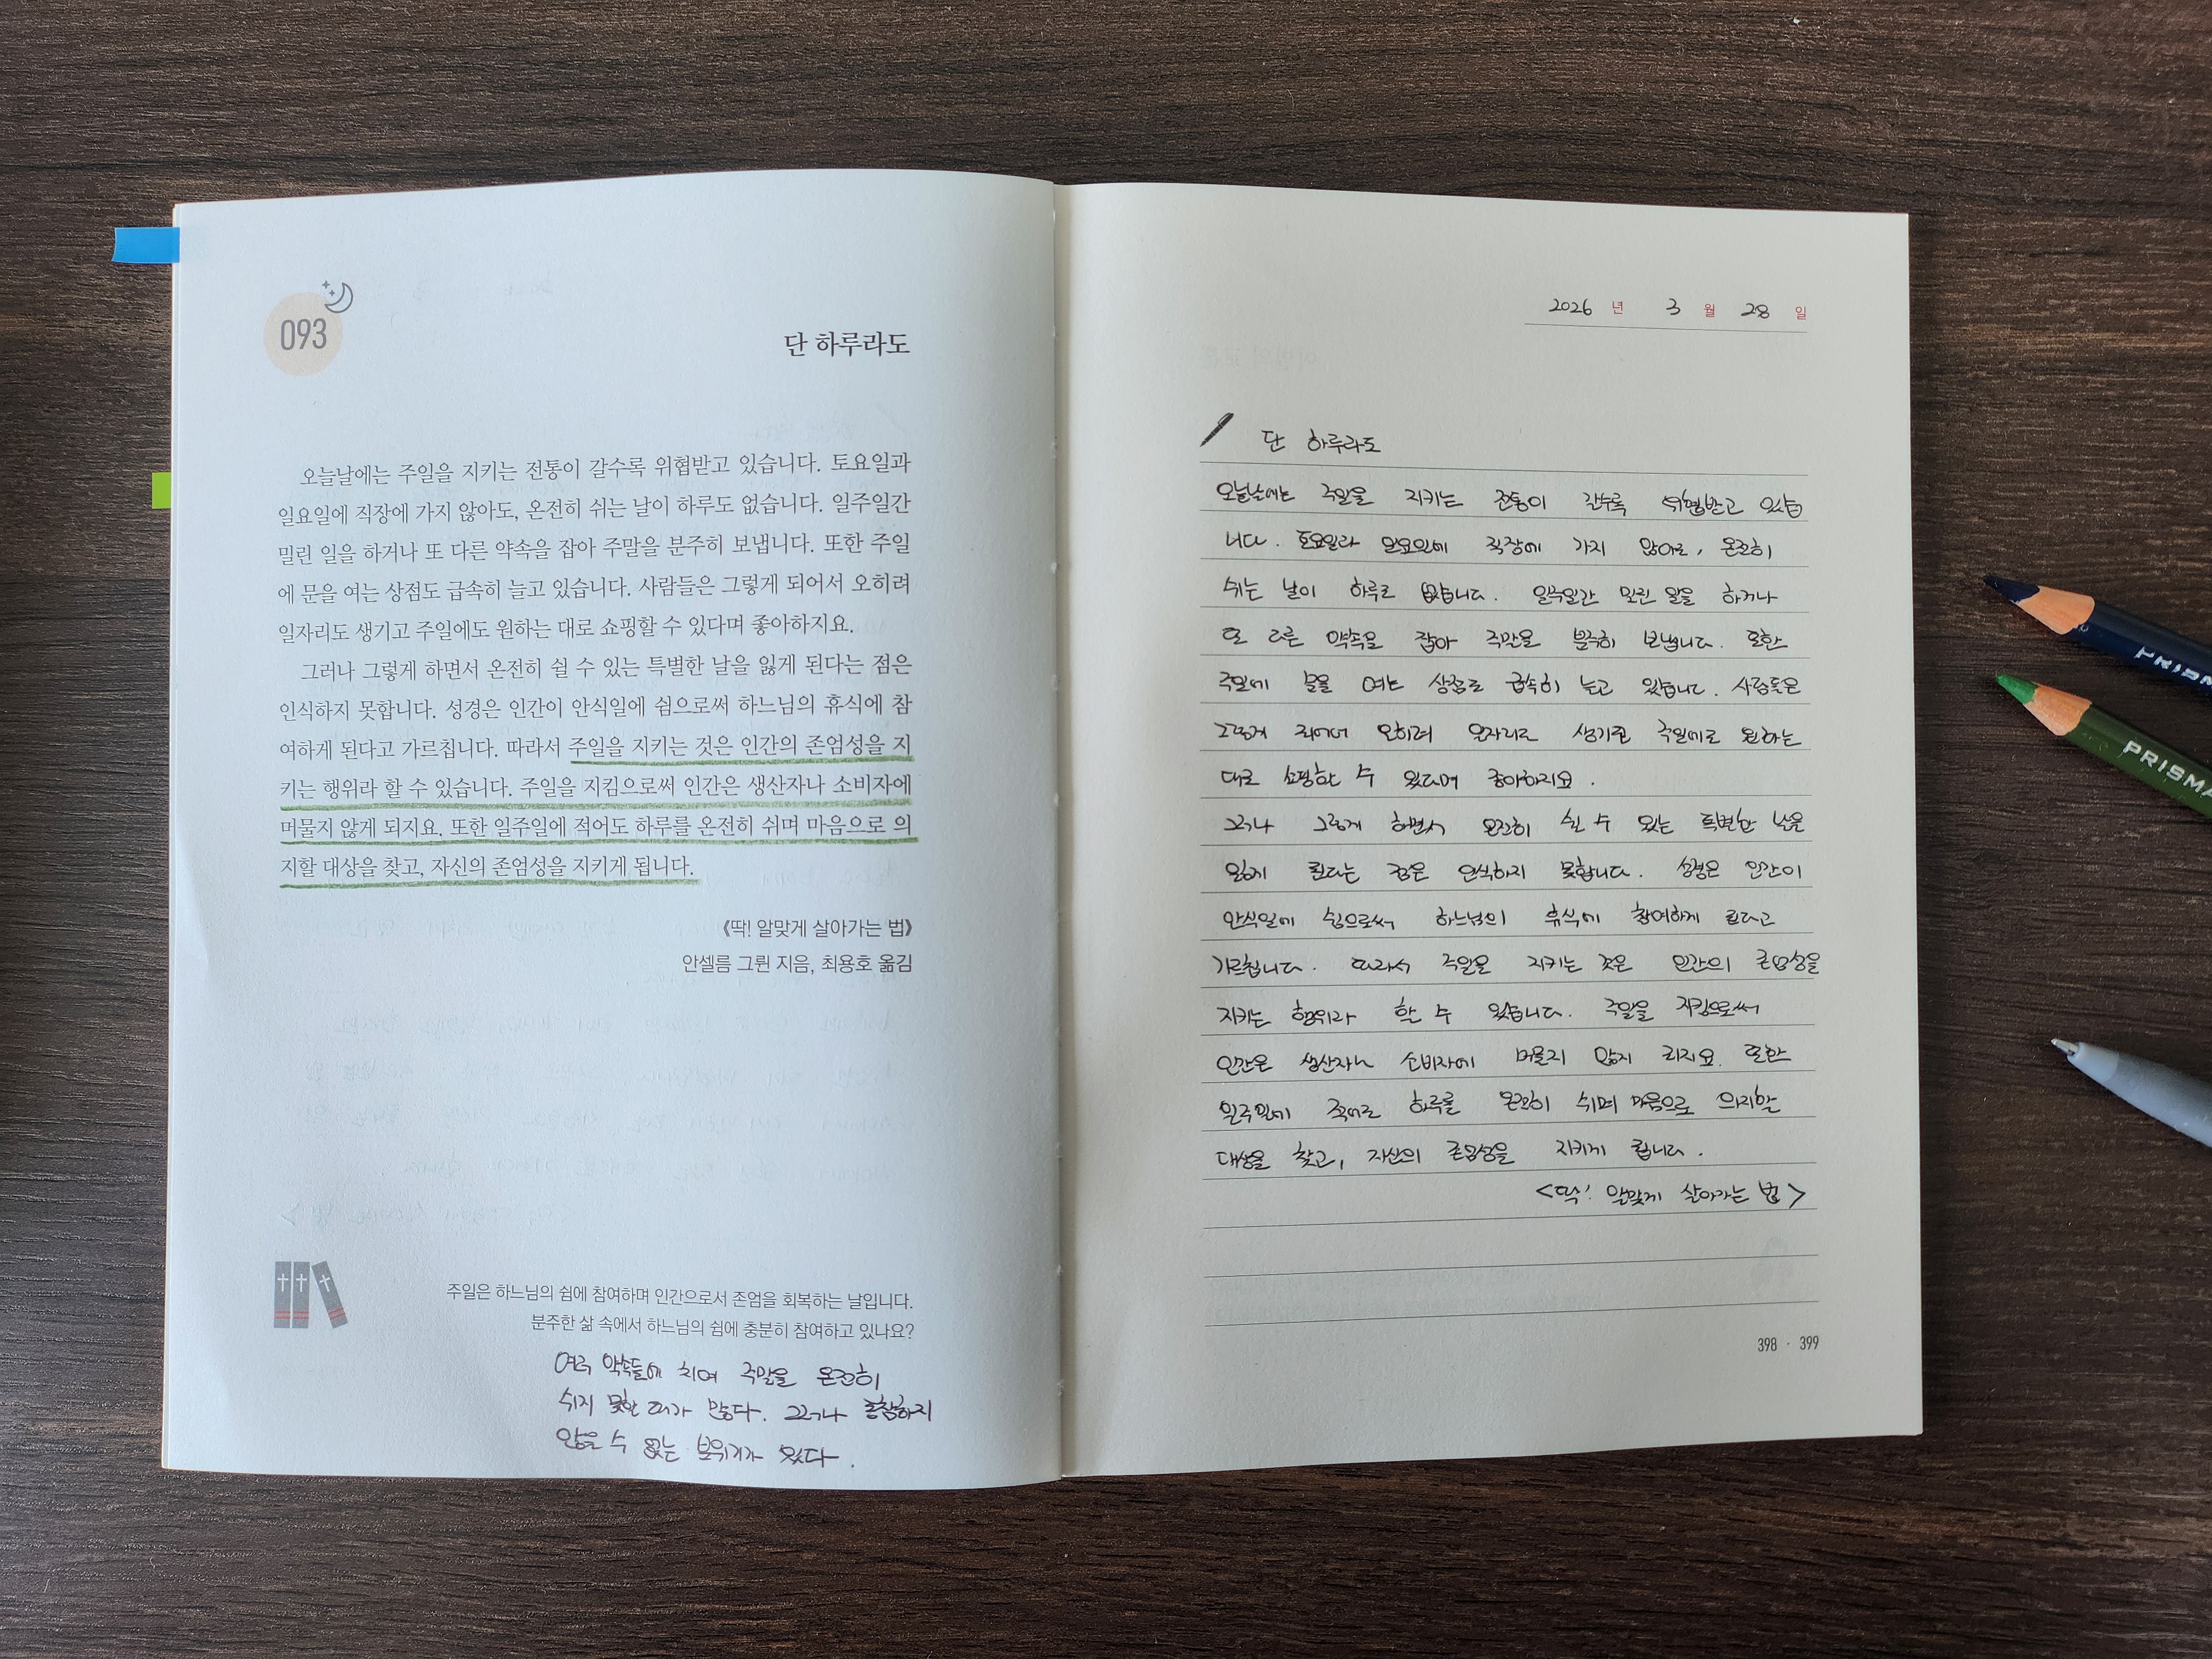 093
단 하루라도
오늘날에는 주일을 지키는 전통이 갈수록 위협받고 있습니다. 토요일과
일요일에 직장에 가지 않아도, 온전히 쉬는 날이 하루도 없습니다. 일주일간
밀린 일을 하거나 또 다른 약속을 잡아 주말을 분주히 보냅니다. 또한 주일
에 문을 여는 상점도 급속히 늘고 있습니다. 사람들은 그렇게 되어서 오히려
일자리도 생기고 주일에도 원하는 대로 쇼핑할 수 있다며 좋아하지요.
그러나 그렇게 하면서 온전히 쉴 수 있는 특별한 날을 잃게 된다는 점은
인식하지 못합니다. 성경은 인간이 안식일에 쉼으로써 하느님의 휴식에 참
여하게 된다고 가르칩니다. 따라서 주일을 지키는 것은 인간의 존엄성을 지
키는 행위라 할 수 있습니다. 주일을 지킴으로써 인간은 생산자나 소비자에
머물지 않게 되지요. 또한 일주일에 적어도 하루를 온전히 쉬며 마음으로 의
지할 대상을 찾고, 자신의 존엄성을 지키게 됩니다.
《딱! 알맞게 살아가는 법》
안셀름 그륀 지음, 최용호 옮김
주일은 하느님의 쉼에 참여하며 인간으로서 존엄을 회복하는 날입니다.
분주한 삶 속에서 하느님의 쉼에 충분히 참여하고 있나요?
여러 약속들에 치여 주말을 온전히
쉬지 못한 때가 많다. 그러나 동참하지
않을 수 없는 분위기가 있다.
2026 년 3 월 28 일
단 하루라도
오늘날에는 주일을 지키는 전통이 갈수록 위협받고 있습
니다. 토요일과 일요일에 직장에 가지 않아도, 온전히
쉬는 날이 하루도 없습니다. 일주일간 밀린 일을 하거나
또 다른 약속을 잡아 주말을 분주히 보냅니다. 또한
주일에 문을 여는 상점도 급속히 늘고 있습니다. 사람들은
그렇게 되어서 오히려 일자리도 생기고 주일에도 원하는
대로 쇼핑할 수 있다며 좋아하지요.
그러나 그렇게 하면서 온전히 쉴 수 있는 특별한 날을
잃게 된다는 점은 인식하지 못합니다. 성경은 인간이
안식일에 쉼으로써 하느님의 휴식에 참여하게 된다고
가르칩니다. 따라서 주일을 지키는 것은 인간의 존엄성을
지키는 행위라 할 수 있습니다. 주일을 지킴으로써
인간은 생산자나 소비자에 머물지 않게 되지요. 또한
일주일에 적어도 하루를 온전히 쉬며 마음으로 의지할
대상을 찾고, 자신의 존엄성을 지키게 됩니다.
<딱! 알맞게 살아가는 법>
398 · 399